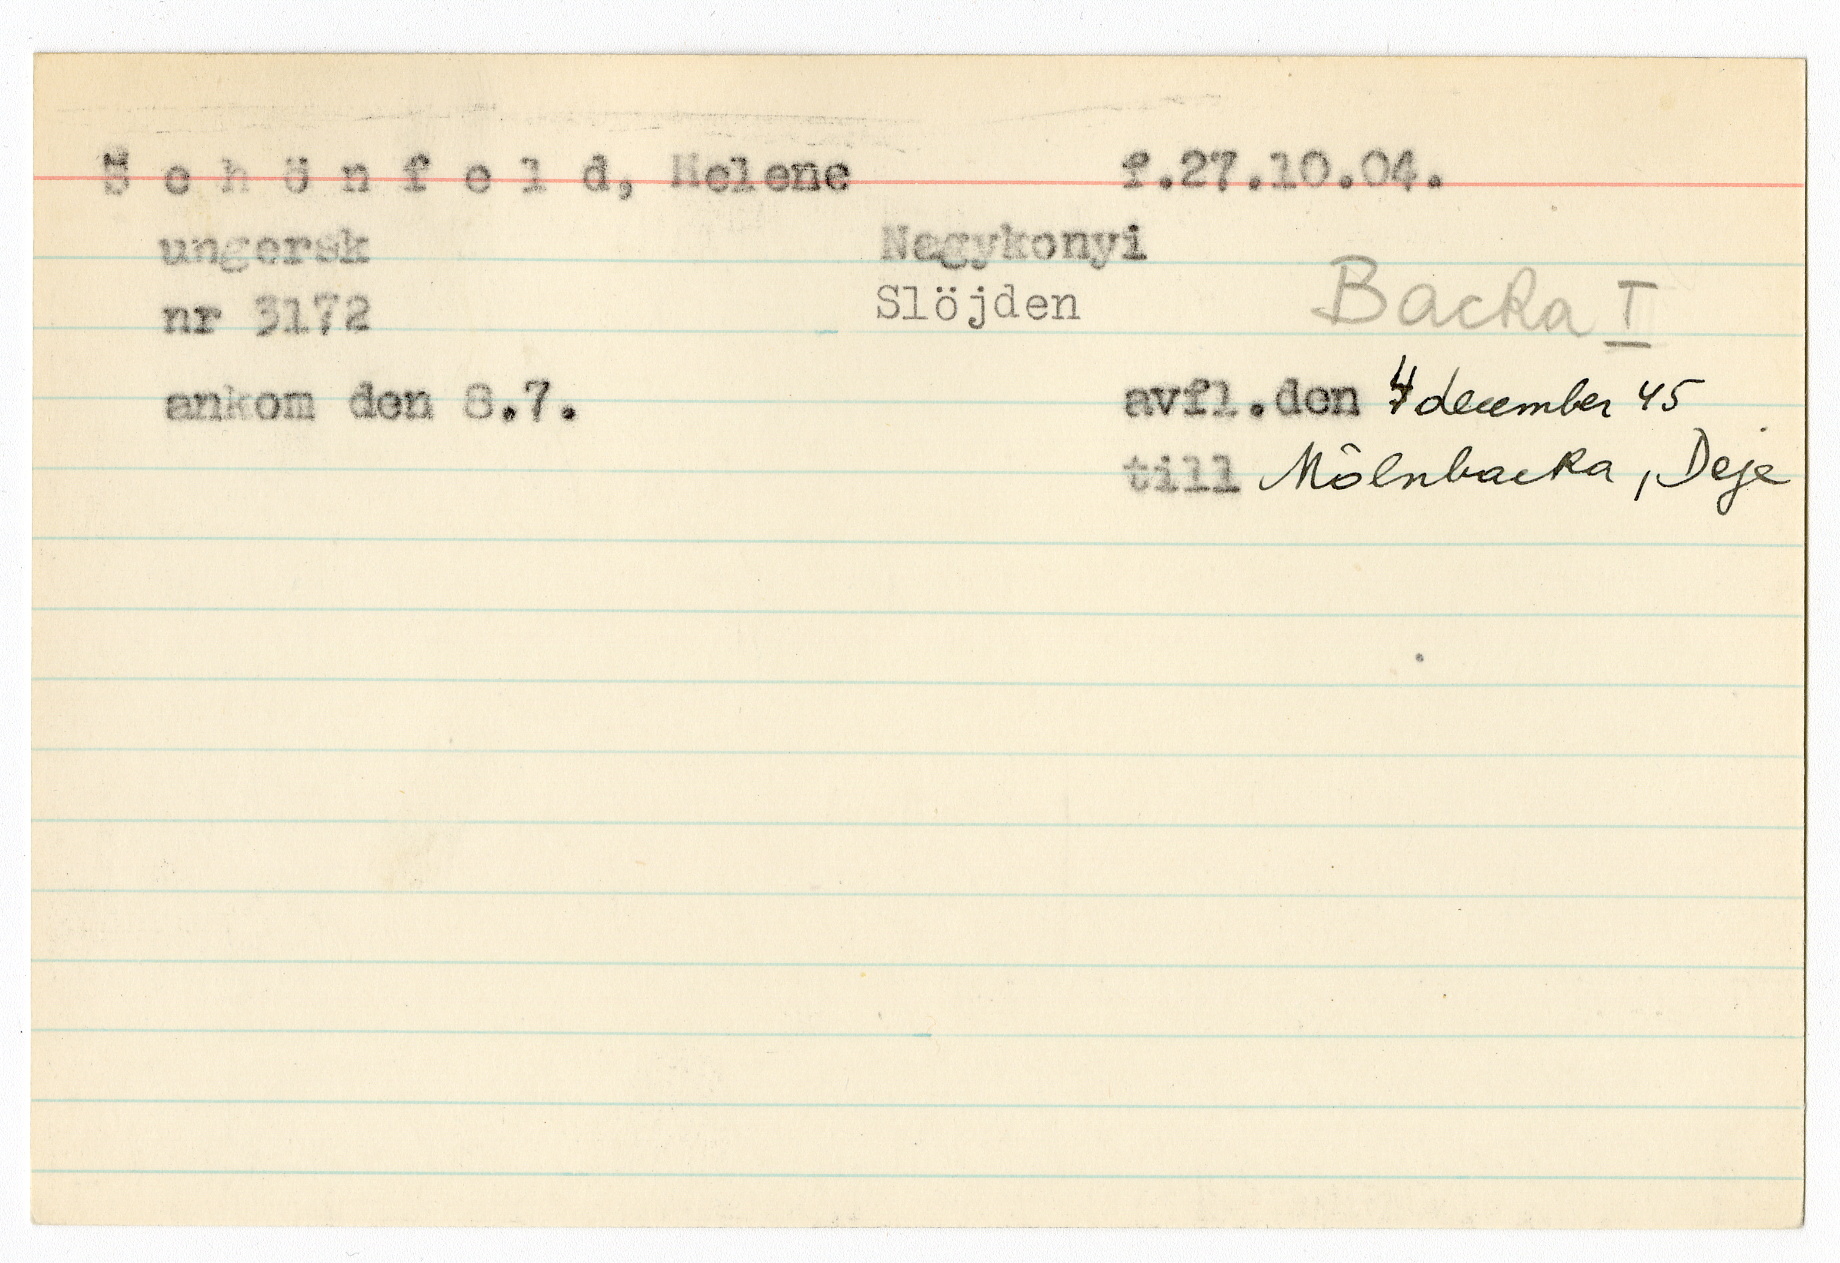 S c h ö n f e l d, Helene f.27.10.04.
ungersk Nagykonyi
nr 3172 Slöjden Backa I
ankom den 8.7. avfl.den 4 december 45
till Mölnbacka, Deje